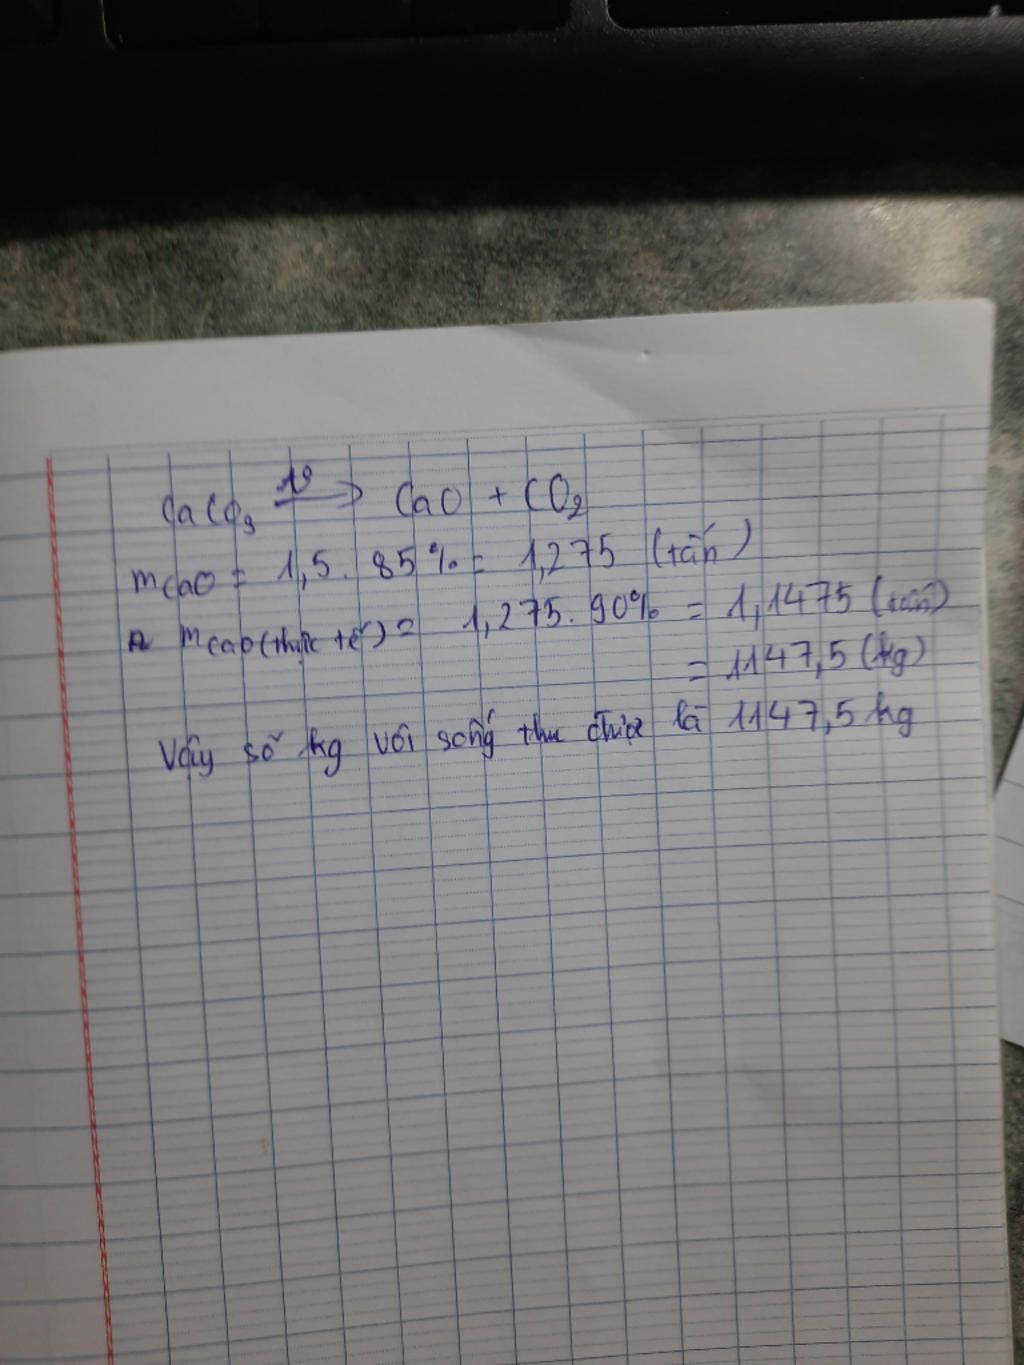 CaCO₃ —t°→ CaO + CO₂
mCaO = 1,5 . 85% = 1,275 (tấn)
mCaO (thực tế) = 1,275 . 90% = 1,1475 (tấn)
= 1147,5 (kg)
Vậy số kg vôi sống thu được là 1147,5 kg